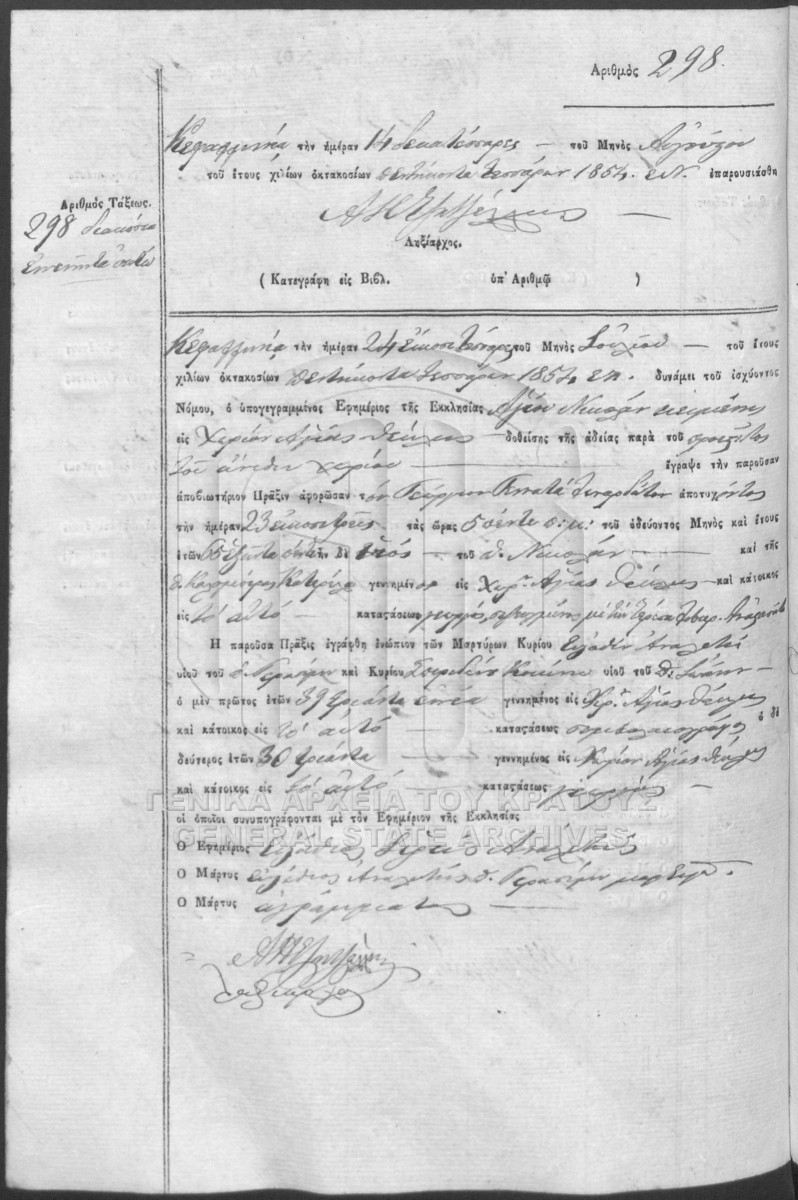 Αριθμὸς 298.
Κεφαλληνία τὴν ἡμέραν 14 δεκατέσσαρες — τοῦ Μηνὸς Αὐγούστου
τοῦ ἔτους χιλίων ὀκτακοσίων πεντήκοντα τεσσάρων 1854. ε.Ν. ἐπαρουσιάσθη
Ληξίαρχος.
( Κατεγράφη εἰς Βιβλ. ὑπ' Ἀριθμῷ )
Αριθμὸς Τάξεως.
298 διακόσια
ἐννενήντα ὀκτὼ
Κεφαλληνία τὴν ἡμέραν 24 εἴκοσι τέσσαρες τοῦ Μηνὸς Ἰουλίου — τοῦ ἔτους
χιλίων ὀκτακοσίων πεντήκοντα τεσσάρων 1854 ε.ν. δυνάμει τοῦ ἰσχύοντος
Νόμου, ὁ ὑπογεγραμμένος Ἐφημέριος τῆς Ἐκκλησίας Ἁγίου Νικολάου κειμένης
εἰς Χωρίον Ἁγίας Θέκλης — δοθείσης τῆς ἀδείας παρὰ τοῦ προεστῶτος
τοῦ ἄνωθεν χωρίου — ἔγραψε τὴν παροῦσαν
ἀποβιωτήριον Πρᾶξιν ἀφορῶσαν τὸν Γεώργιον ἀποτυχόντος
τὴν ἡμέραν 23 εἴκοσι τρεῖς τὰς ὥρας 5 πέντε π: μ: τοῦ ὁδεύοντος Μηνὸς καὶ ἔτους
ἐτῶν 65 ἑξήντα πέντε ἦν δὲ υἱὸς — τοῦ π. Νικολάου — καὶ τῆς
γεννημένος εἰς Χωρ. Ἁγίας Θέκλης — καὶ κάτοικος
εἰς τὸ αὐτὸ — καταστάσεως γεωργὸς
Ἡ παροῦσα Πρᾶξις ἐγράφθη ἐνώπιον τῶν Μαρτύρων Κυρίου
υἱοῦ τοῦ π. Γερασίμου καὶ Κυρίου Σπυρίδων υἱοῦ τοῦ π. Ἰωάννου —
ὁ μὲν πρῶτος ἐτῶν 39 τριάντα ἐννέα γεννημένος εἰς Χωρ. Ἁγίας Θέκλης
καὶ κάτοικος εἰς τὸ αὐτὸ — καταστάσεως ὁ δὲ
δεύτερος ἐτῶν 30 τριάντα — γεννημένος εἰς Χωρίον Ἁγίας Θέκλης
καὶ κάτοικος εἰς τὸ αὐτὸ — καταστάσεως γεωργὸς —
ΓΕΝΙΚΑ ΑΡΧΕΙΑ ΤΟΥ ΚΡΑΤΟΥΣ
οἱ ὁποῖοι συνυπογράφονται μὲ τὸν Ἐφημέριον τῆς Ἐκκλησίας
GENERAL STATE ARCHIVES
Ὁ Ἐφημέριος
Ὁ Μάρτυς π. Γερασίμου μαρτυρῶ.
Ὁ Μάρτυς ἀγράμματος —